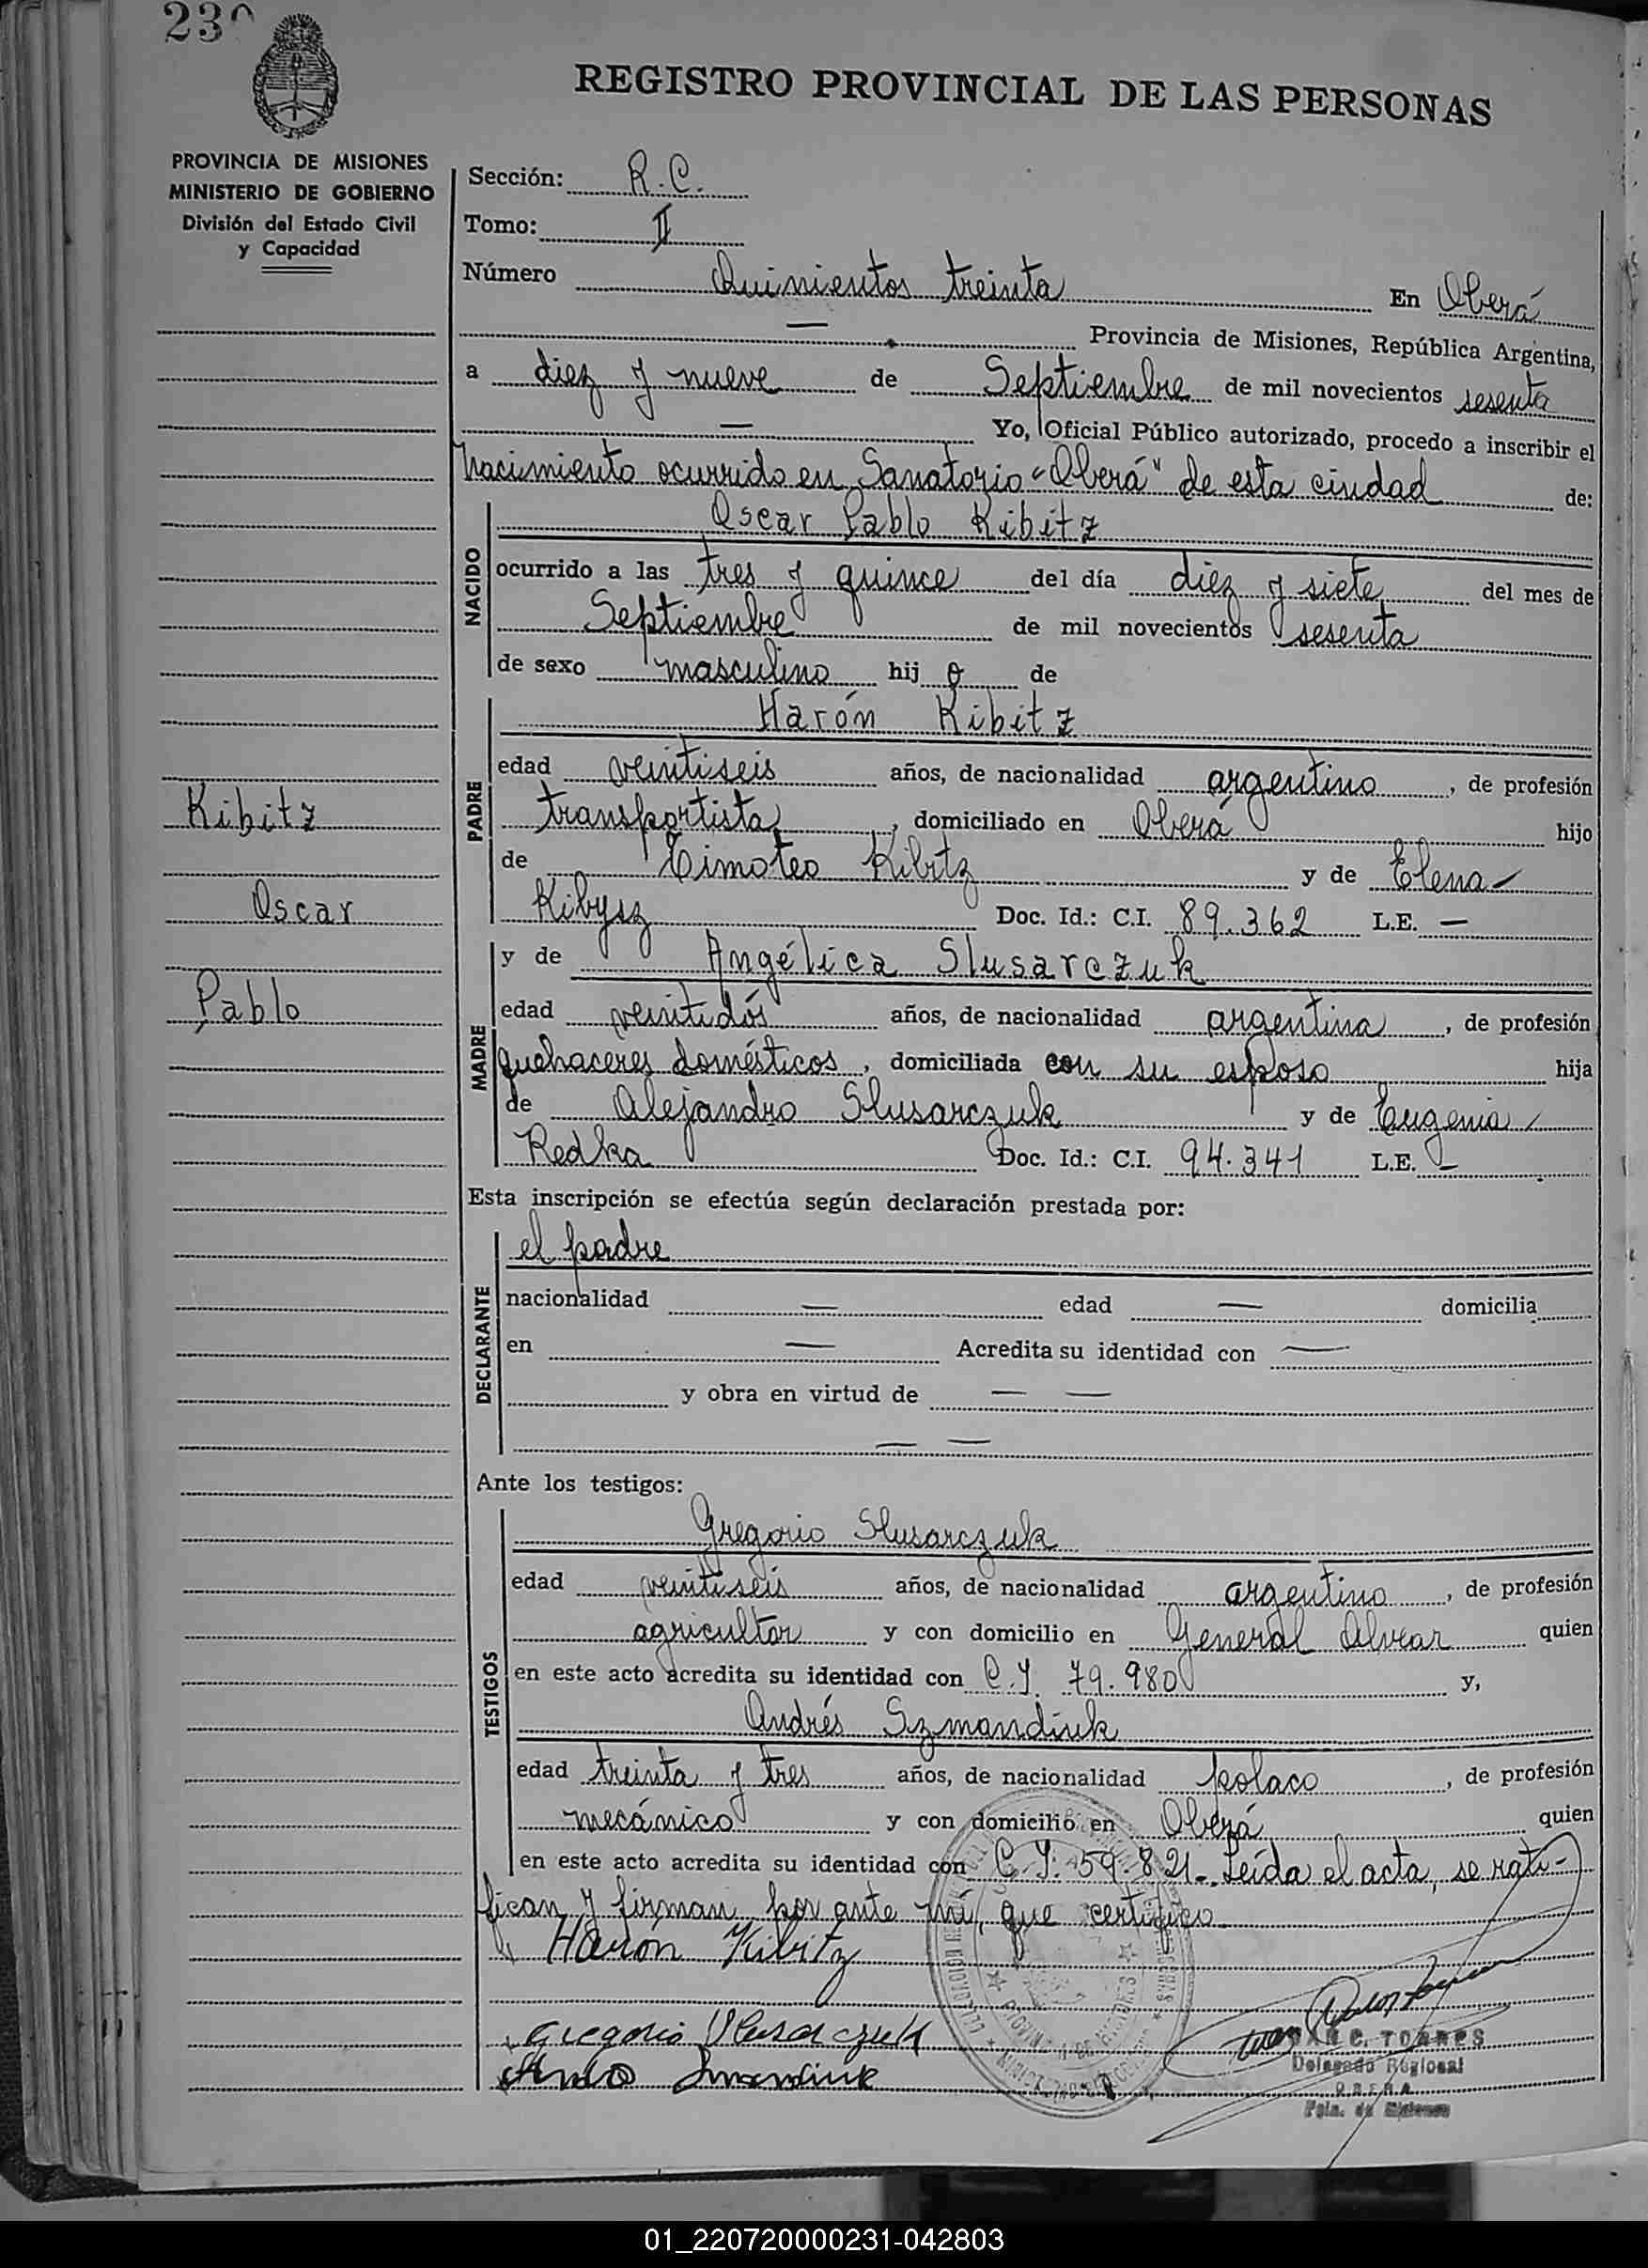 REGISTRO PROVINCIAL DE LAS PERSONAS
PROVINCIA DE MISIONES
MINISTERIO DE GOBIERNO
División del Estado Civil
y Capacidad
Sección: R.C.
Tomo: II
Número Quinientos treinta En Oberá
— Provincia de Misiones, República Argentina,
a diez y nueve de Septiembre de mil novecientos sesenta
— Yo, Oficial Público autorizado, procedo a inscribir el
nacimiento ocurrido en Sanatorio "Oberá" de esta ciudad de:
NACIDO
Oscar Pablo Kibitz
ocurrido a las tres y quince del día diez y siete del mes de
Septiembre de mil novecientos sesenta
de sexo masculino hij o de
PADRE
Harón Kibitz
edad veintiseis años, de nacionalidad argentino, de profesión
transportista, domiciliado en Oberá hijo
de Timoteo Kibitz y de Elena
Kibysz Doc. Id.: C.I. 89.362 L.E. —
Kibitz
Oscar
Pablo
MADRE
y de Angélica Slusarczuk
edad veintidós años, de nacionalidad argentina, de profesión
quehaceres domésticos, domiciliada con su esposo hija
de Alejandro Slusarczuk y de Eugenia
Redka Doc. Id.: C.I. 94.341 L.E. —
Esta inscripción se efectúa según declaración prestada por:
DECLARANTE
el padre
nacionalidad — edad — domicilia
en — Acredita su identidad con —
y obra en virtud de — —
— —
Ante los testigos:
TESTIGOS
Gregorio Slusarczuk
edad veintiseis años, de nacionalidad argentino, de profesión
agricultor y con domicilio en General Alvear quien
en este acto acredita su identidad con C.I. 79.980 y,
Andrés Szmandiuk
edad treinta y tres años, de nacionalidad polaco, de profesión
mecánico y con domicilio en Oberá quien
en este acto acredita su identidad con C.I. 59.821-. Leída el acta, se rati-
fican y firman por ante mí, que certifico
Harón Kibitz
Gregorio Slusarczuk
C. TORRES
Delegado Regional
OBERA
Pcia. de Misiones
01_220720000231-042803